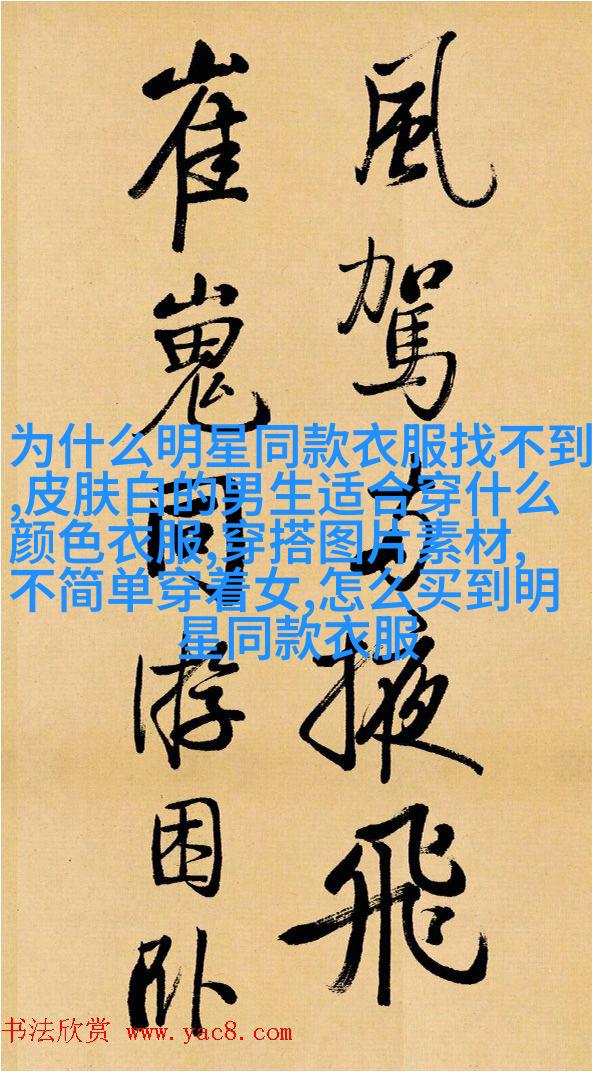 風駕腋飛
崔嵬同游困卧
为什么明星同款衣服找不到
,皮肤白的男生适合穿什么
颜色衣服,穿搭图片素材,
不简单穿着女,怎么买到明
星同款衣服
书法欣赏 www.yac8.com